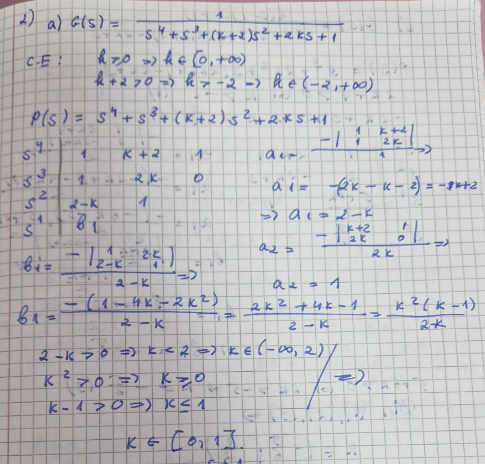 2) a) G(s) = 1 / s⁴+s³+(k+2)s²+2ks+1
C.E: k≥0 => k∈[0,+∞)
k+2>0 => k>-2 => k∈(-2,+∞)
P(s) = s⁴+s³+(k+2)s²+2ks+1
s⁴ | 1 k+2 1
s³ | 1 2k 0
s² | 2-k 1
s¹ | b1
a1= -|1 k+2; 1 2k| / 1 =>
a1 = -(2k-k-2) = -k+2
=> a1 = 2-k
a2 = -|k+2 1; 2k 0| / 2k =>
a2 = 1
b1= -|1 2k; 2-k 1| / 2-k =>
b1 = -(1-4k-2k²) / 2-k = 2k²+4k-1 / 2-k = k²(k-1) / 2-k
2-k>0 => k<2 => k∈(-∞,2)
k²>0 => k≥0 =>
k-1>0 => k≤1
k∈[0,1].